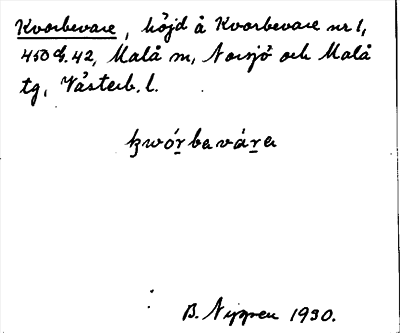 Kvorbevare, höjd å Kvorbevare nr 1,
450 q. 42, Malå sn, Norsjö och Malå
tg, Västerb. l.
kwórbavára
B. Nygren 1930.